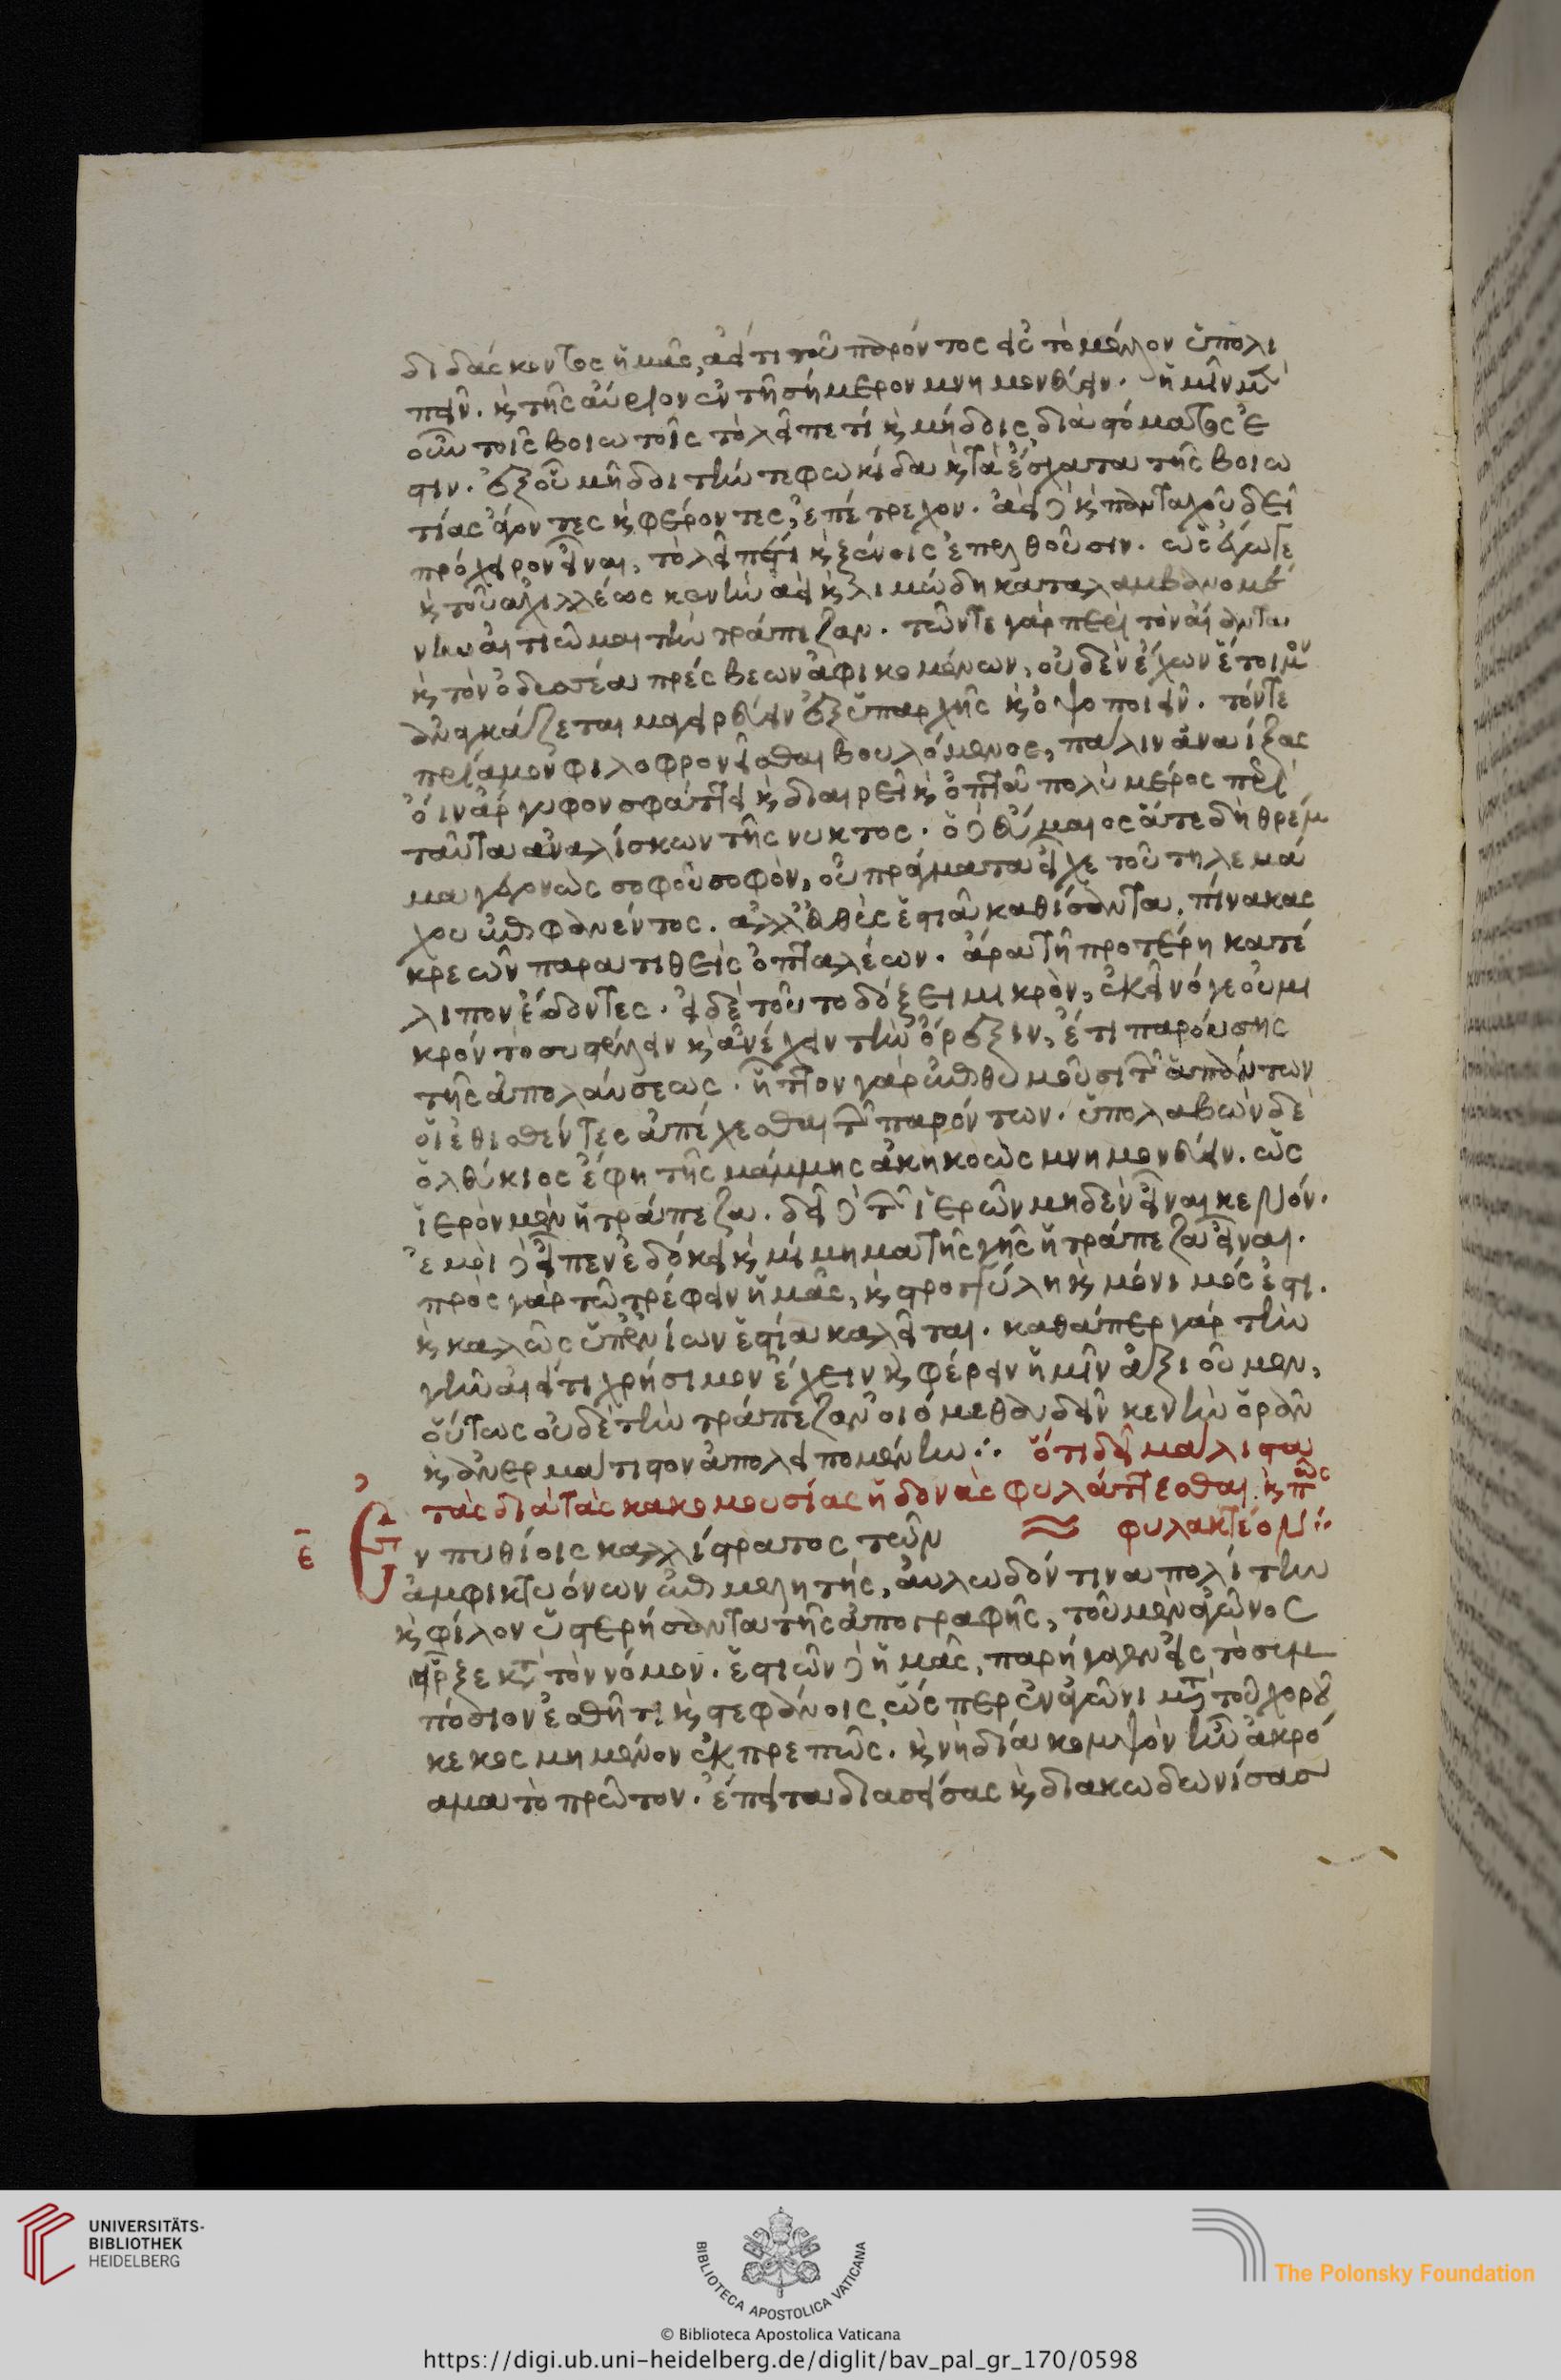 διδάσκοντος ἡμᾶς, ἀεί τι τοῦ παρόντος εἰς τὸ μέλλον ὑπολι
πεῖν. καὶ τῆς αὔριον ἐν τῇ σήμερον μνημονεύειν. ἡμῖν μὲν
οὖν τοῖς βοιωτοῖς τὸ λεῖπέ τι καὶ μήδοις διὰ στόματος ἐ
στιν. ἐξ οὗ μῆδοι τήν τε φωκίδα καὶ τὰ ἔσχατα τῆς βοιω
τίας ἄγοντες καὶ φέροντες, ἐπέτρεχον. ἀεὶ δὲ καὶ πανταχοῦ δεῖ
πρόχειρον εἶναι, τὸ λεῖπέ τι καὶ ξένοις ἐπελθοῦσιν. ὡς ἔγωγε
καὶ τοῦ ἀχιλλέως κενὴν ἀεὶ καὶ λιμώδη καταλαμβανομέ
νην αἰτιῶμαι τὴν τράπεζαν. τῶν τε γὰρ περὶ τὸν αἴαντα
καὶ τὸν ὀδυσσέα πρέσβεων ἀφικομένων, οὐδὲν ἔχων ἕτοιμον
ἀναγκάζεται μαγειρεύειν ἐξ ὑπαρχῆς καὶ ὀψοποιεῖν. τόν τε
πρίαμον φιλοφρονεῖσθαι βουλόμενος, πάλιν ἀναΐξας
ὄιν ἄργυφον σφάττει καὶ διαιρεῖ καὶ ὀπτᾷ πολὺ μέρος περὶ
ταῦτα ἀναλίσκων τῆς νυκτός. ὁ δὲ εὔμαιος ἅτε δὴ θρέμ
μα γεγονὼς σοφοῦ σοφὸν, οὐ πράγματα εἶχε τοῦ τηλεμά
χου ἐπιφανέντος. ἀλλ' εὐθὺς ἑστιᾷ καθίσαντα, πίνακας
κρεῶν παρατιθεὶς ὀπταλέων. ἅρα τῇ προτέρῃ κατέ
λιπον ἔδοντες. εἰ δὲ τοῦτο δόξει μικρὸν, ἐκεῖνό γε οὐ μι
κρόν τὸ συστέλλειν καὶ ἀνέχειν τὴν ὄρεξιν, ἔτι παρούσης
τῆς ἀπολαύσεως. ἧττον γὰρ ἐπιθυμοῦσι τῶν ἀπόντων
οἱ ἐθισθέντες ἀπέχεσθαι τῶν παρόντων. ὑπολαβὼν δὲ
ὁ λεύκιος ἔφη τῆς μάμμης ἀκηκοὼς μνημονεύειν. ὡς
ἱερὸν μὲν ἡ τράπεζα. δεῖ δὲ τῶν ἱερῶν μηδὲν εἶναι κενόν.
ἐμοὶ δὲ εἶπεν ἐδόκει καὶ μίμημα τῆς γῆς ἡ τράπεζα εἶναι.
πρὸς γὰρ τῷ τρέφειν ἡμᾶς, καὶ στρογγύλη καὶ μόνιμός ἐστι.
καὶ καλῶς ὑπ' ἐνίων ἑστία καλεῖται. καθάπερ γὰρ τὴν
γῆν ἀεί τι χρήσιμον ἔχειν καὶ φέρειν ἡμῖν ἀξιοῦμεν,
οὕτως οὐδὲ τὴν τράπεζαν οἰόμεθα δεῖν κενὴν ὁρᾶν
καὶ ἀνερμάτιστον ἀπολειπομένην∴ ὅτι δεῖ μάλιστα
τὰς διὰ τὰς κακομουσίας ἡδονὰς φυλάττεσθαι. καὶ πῶς
φυλακτέον∴
ε Ἐν πυθίοις καλλίστρατος τῶν
ἀμφικτυόνων ἐπιμελητής, αὐλῳδόν τινα πολίτην
καὶ φίλον ὑστερήσαντα τῆς ἀπογραφῆς, τοῦ μὲν ἀγῶνος
εἶρξε κατὰ τὸν νόμον. ἑστιῶν δὲ ἡμᾶς, παρήγαγεν εἰς τὸ συμ
πόσιον ἐσθῆτι καὶ στεφάνοις, ὥσπερ ἐν ἀγῶνι μετὰ τοῦ χοροῦ
κεκοσμημένον ἐκπρεπῶς. καὶ νὴ δία κομψὸν ἦν ἀκρό
αμα τὸ πρῶτον. ἔπειτα διασείσας καὶ διακωδωνίσας
UNIVERSITÄTS-
BIBLIOTHEK
HEIDELBERG
BIBLIOTECA APOSTOLICA VATICANA
The Polonsky Foundation
© Biblioteca Apostolica Vaticana
https://digi.ub.uni-heidelberg.de/diglit/bav_pal_gr_170/0598